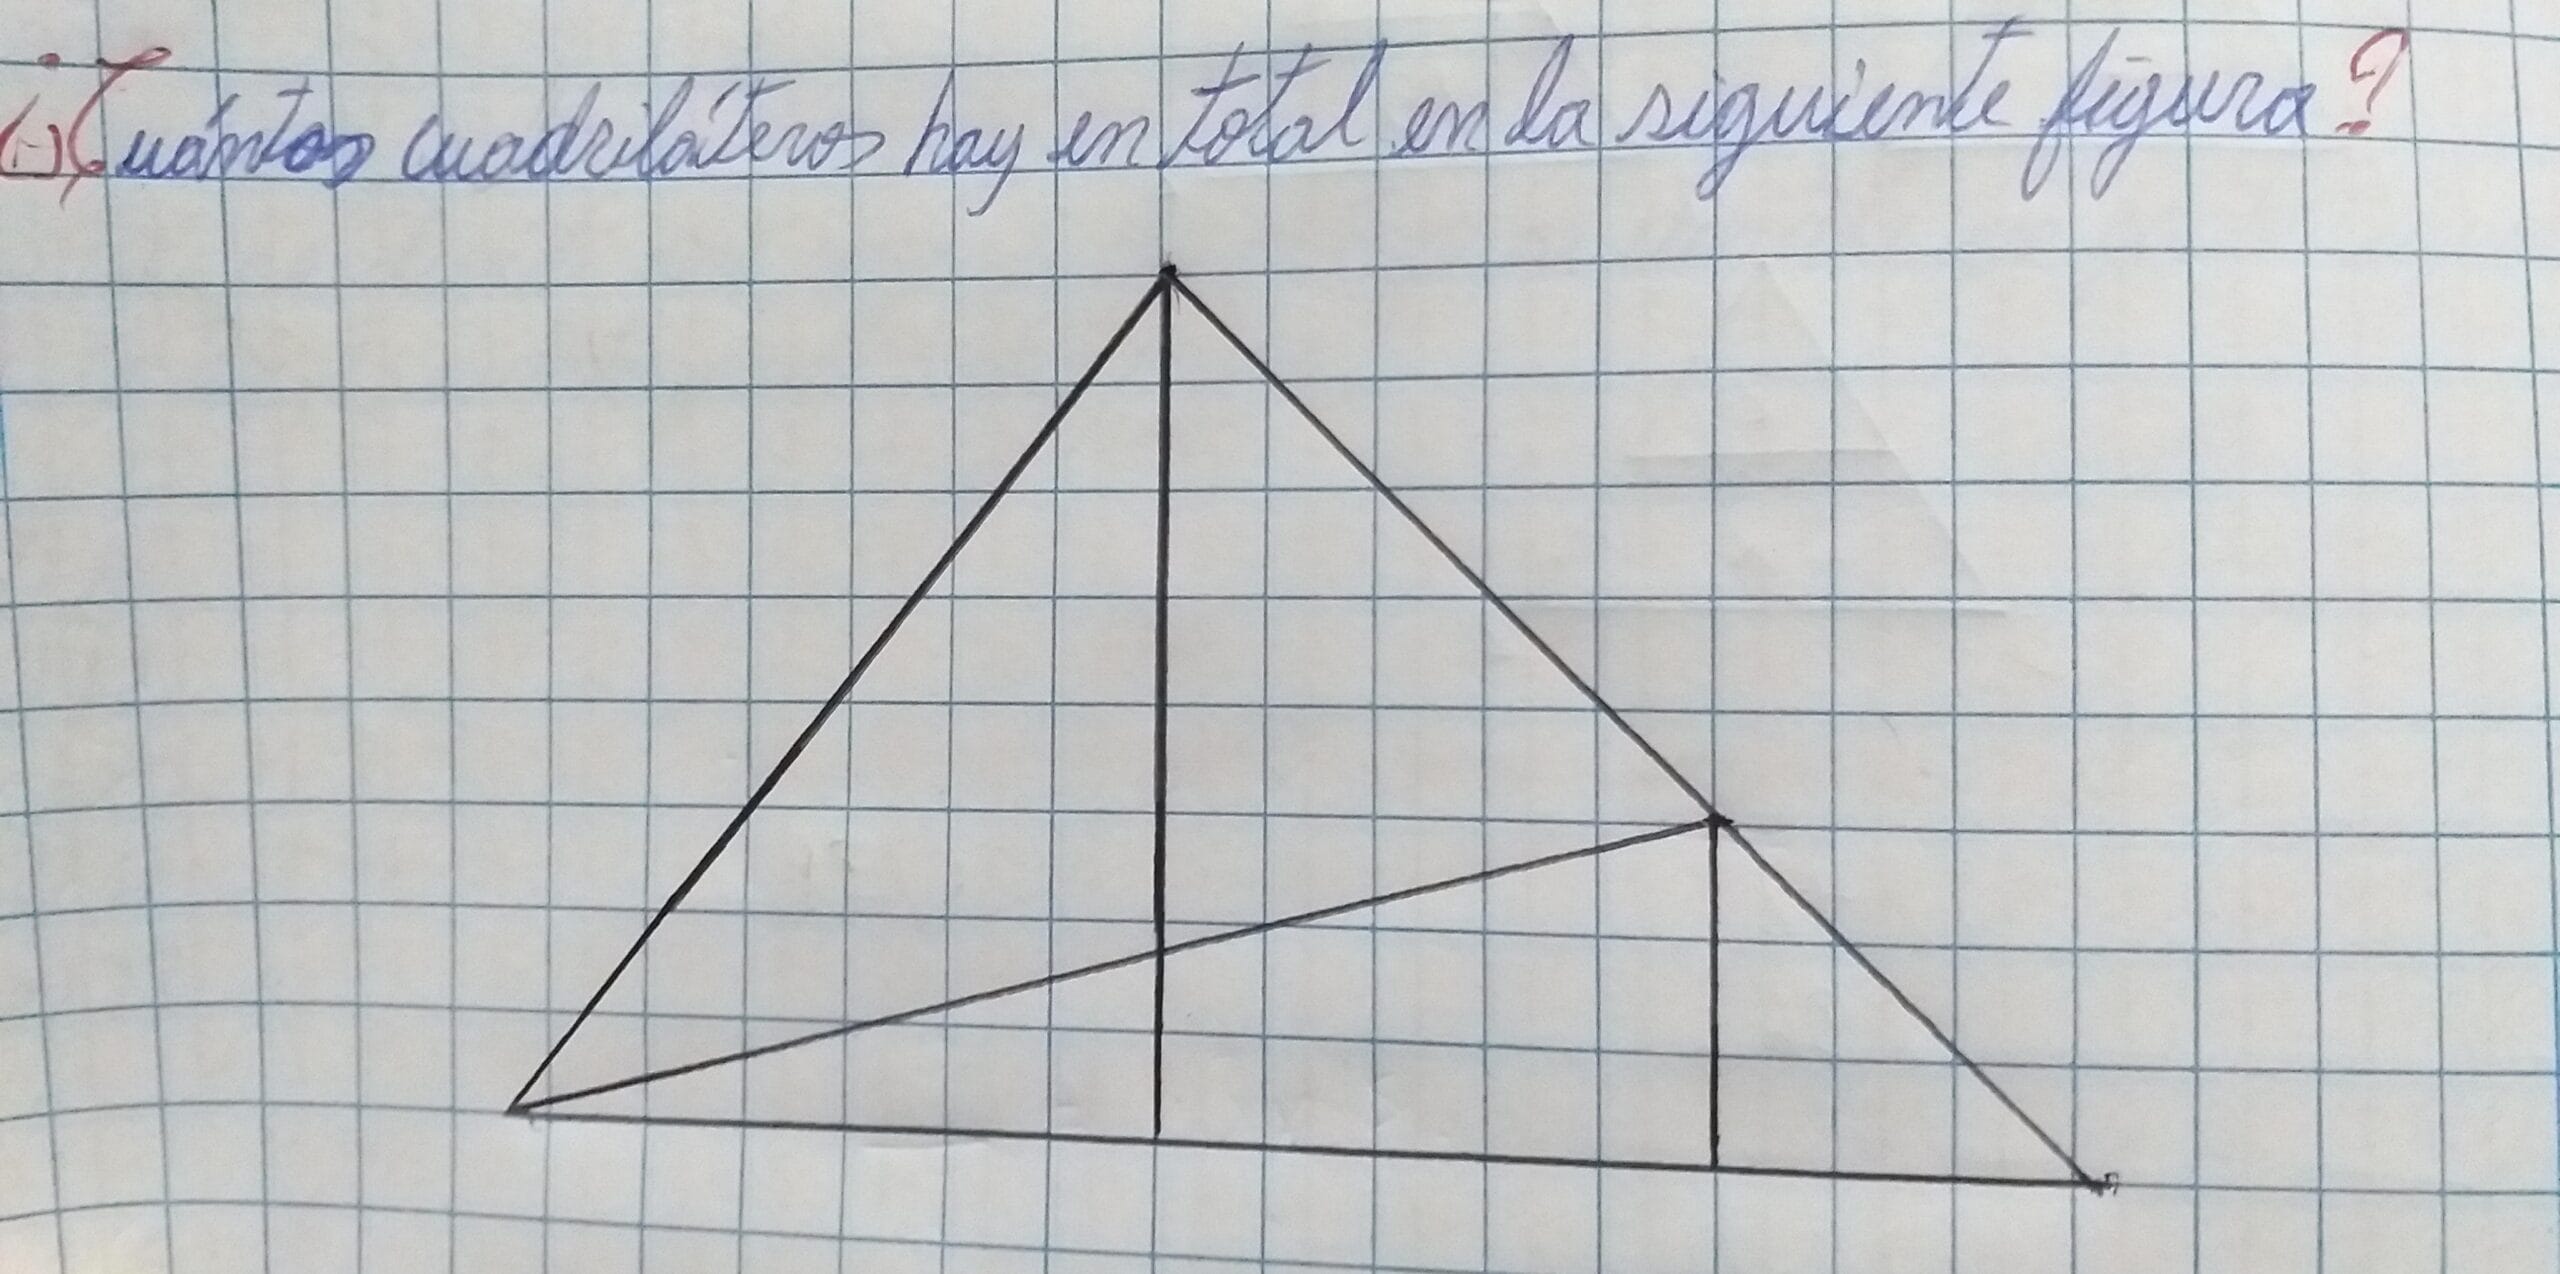 1-) ¿Cuántos cuadriláteros hay en total en la siguiente figura?